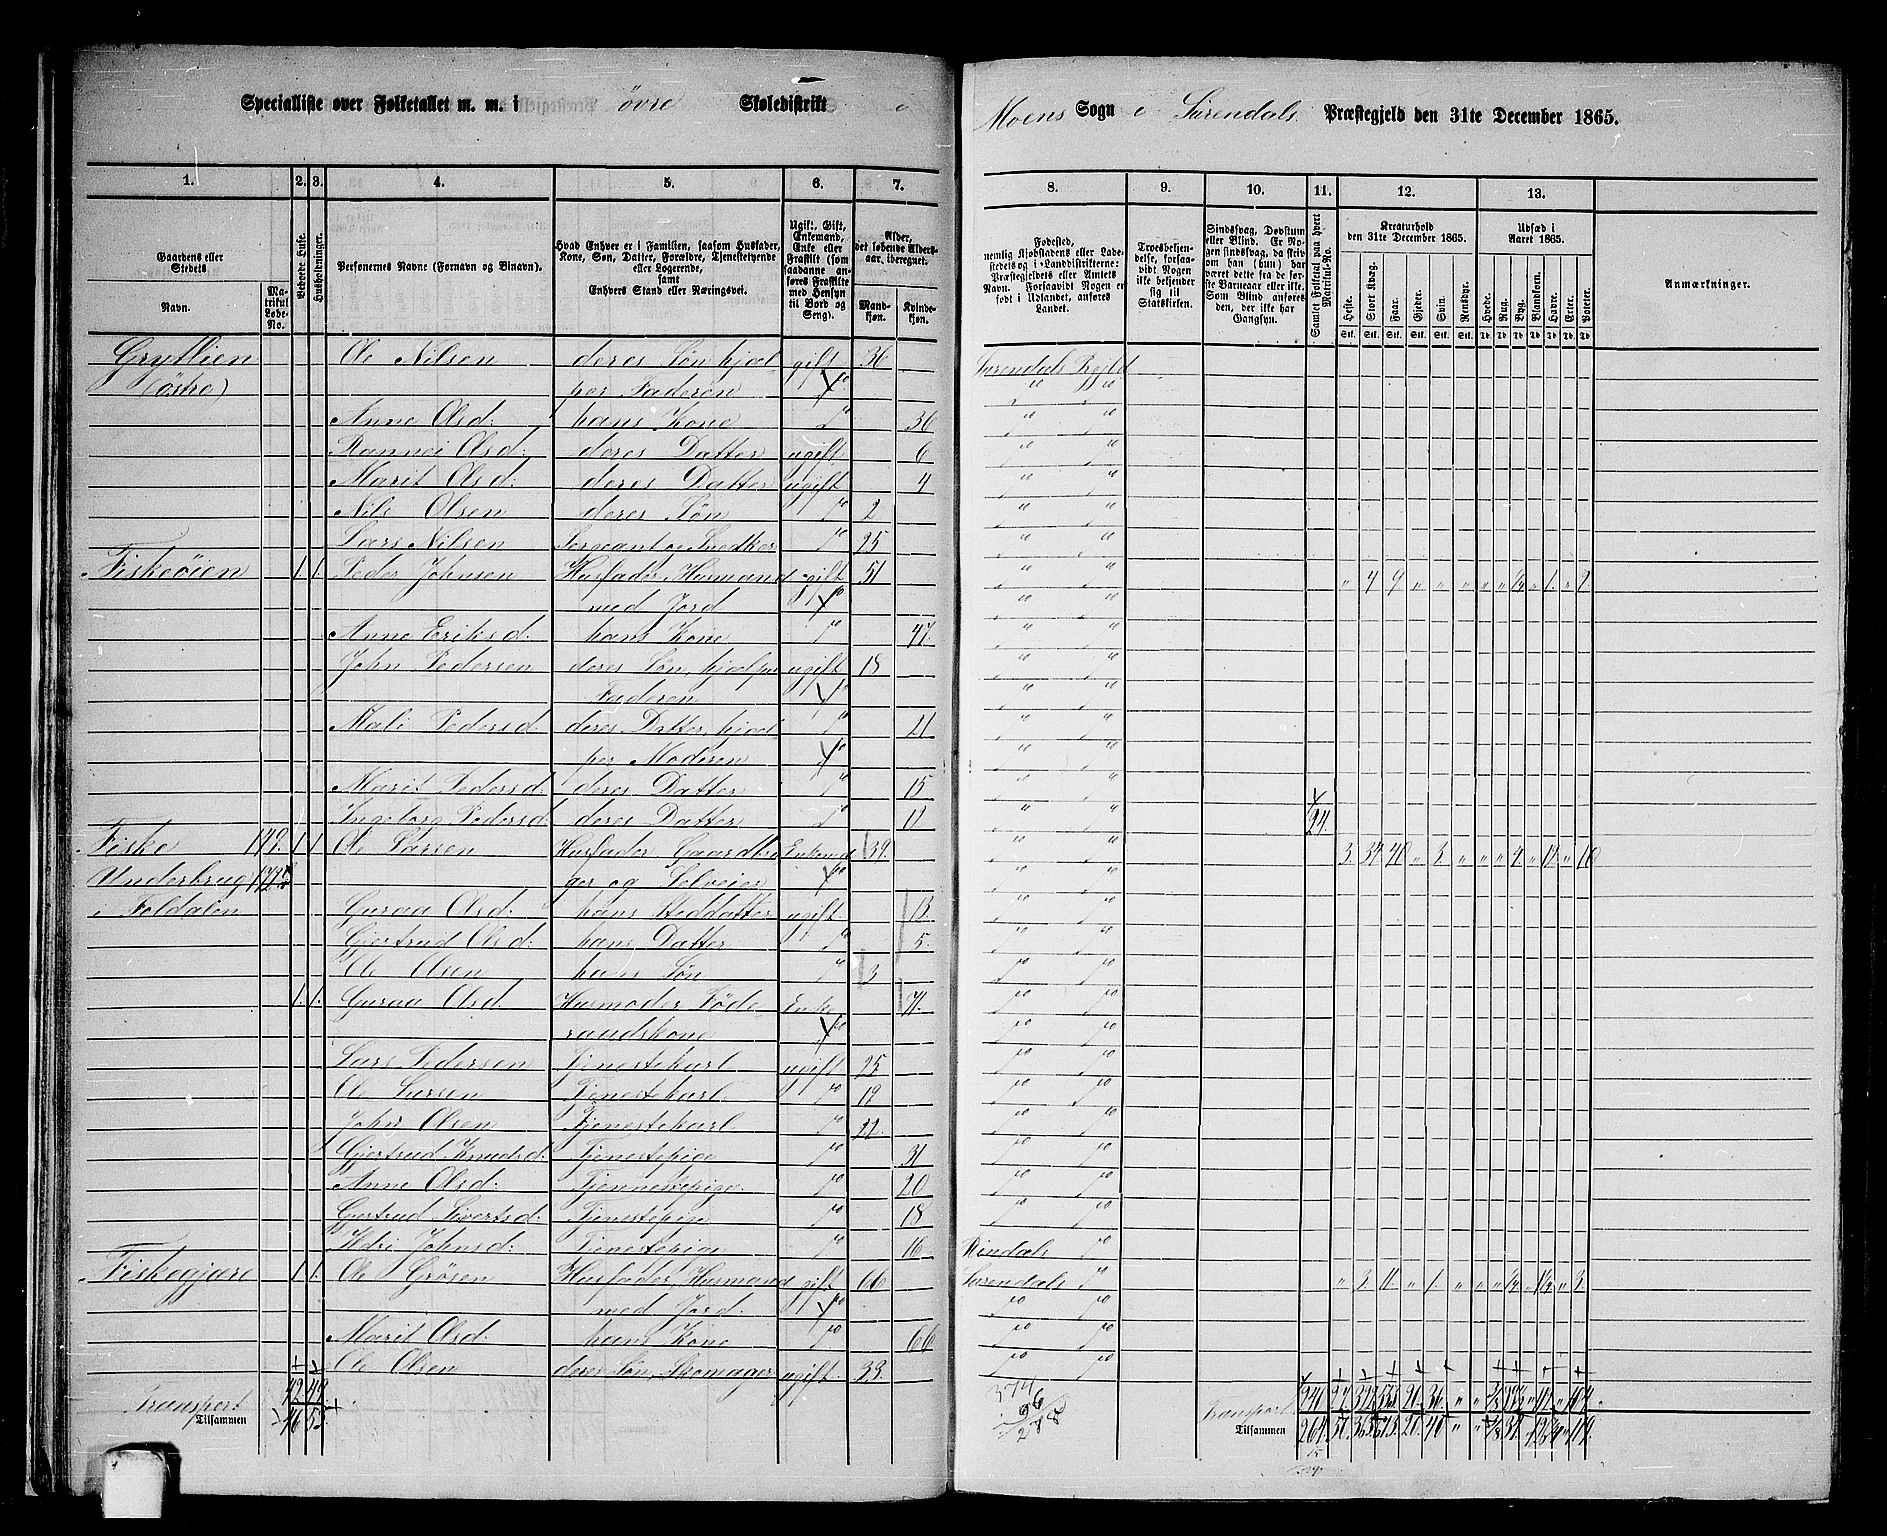 Specialliste over Folketallet m. m. i øvre Skoledistrikt i
Moens Sogn i Surendals Præstegjeld den 31te December 1865.
1. 2. 3. 4. 5. 6. 7. 8. 9. 10. 11. 12. 13.
Gaardens eller Stedets
Navn.
Matrikul Løbe-No.
Beboede Huse.
Husholdninger.
Personernes Navne (Fornavn og Binavn).
Hvad Enhver er i Familien, saasom Husfader, Kone, Søn, Datter, Forældre, Tjenestetyende eller Logerende,
samt
Enhvers Stand eller Næringsvei.
Ugift, Gift, Enkemand, Enke eller Fraskilt (som saadanne anføres Fraskilte med Hensyn til Bord og Seng).
Alder, det løbende Aldersaar, iberegnet.
Mandkjøn.
Kvindekjøn.
Fødested,
nemlig Kjøbstadens eller Ladestedets og i Landdistrikterne: Præstegjeldets eller Amtets Navn. Forsaavidt Nogen er født i Udlandet, anføres Landet.
Troesbekjendelse, forsaavidt Nogen ikke bekjender sig til Statskirken.
Sindssvag, Døvstum eller Blind. Er Nogen sindssvag, da skrives om han (hun) har været dette fra de første Barneaar eller ikke. Som Blind anføres den, der ikke har Gangsyn.
Samlet Folketal paa hvert Matrikul-No.
Kreaturhold
den 31te December 1865.
Heste. Stort Kvæg. Faar. Gjeder. Svin. Rensdyr.
Udsæd i
Aaret 1865.
Hvede. Rug. Byg. Blandkorn. Havre. Erter. Poteter.
Stk. Stk. Stk. Stk. Stk. Stk. Td. Td. Td. Td. Td. Td. Td.
Anmærkninger.
Gryttien Ole Nilsen deres Søn hjæl- gift 36 Surendals Pgjld
(østre) per Faderen
Anne Olsd: hans Kone do 36
Olsd: deres Datter ugift 6
Marit Olsd: deres Datter ugift 4
Nils Olsen deres Søn do 2
Lars Nilsen Sergeant og Snedker do 25
Fiskeøien 1. 1. Peder Johnsen Husfader, Husmand gift 51 " 4 9 " " " " " 1/2 " 1. " 2
med Jord
Anne Eriksd. hans Kone do 47.
John Pedersen deres Søn, hjælper ugift 18
Faderen
Mali Pedersd. deres Datter, hjæl- do 21
per Moderen
Marit Pedersd. deres Datter do 15
Ingeborg Pedersd. deres Datter do 11 24.
Fiske 172. 1. 1. Ole Larsen Husfader, Gaardbru- Enkemd 39.
Underbrug ger og Selveier
i Foldalen Guraa Olsd. hans Steddatter ugift. 13.
Gjertrud Olsd. hans Datter do 5.
Ole Olsen hans Søn do 3
1. 1. Guraa Olsd. Husmoder Føde- Enke 71.
raadskone
Lars Pedersen Tjenestekarl ugift 25
Ole Larsen Tjenestekarl do 19
John Olsen Tjenestekarl do 22.
Gjertrud Knudsd. Tjenestepige do 31
Anne Olsd. Tjennestepige do 20
Gjertrud Sivertsd. Tjenestepige do 18
Johnsd. Tjenestepige do 16 Rindals do
Fiskegjære 1. 1. Ole Husfader, Husmand gift 66 Surendals do
med Jord.
Marit Olsd. hans Kone do 66
Ole Olsen deres Søn, Skomager ugift. 33.
Transport 42 49 Transport 240
Tilsammen 46 55 Tilsammen 264
374
96
278